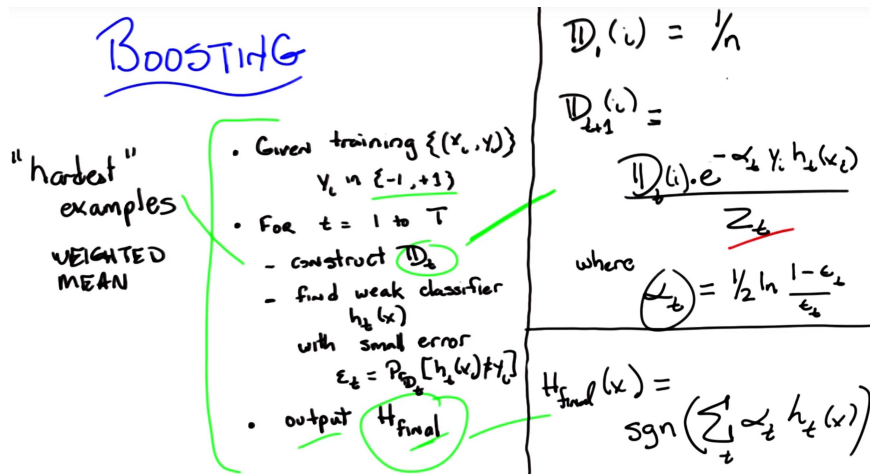 BOOSTING
"hardest"
examples
WEIGHTED
MEAN
• Given training {(x_i, y_i)}
y_i in {-1, +1}
• FOR t = 1 to T
- construct 𝔻_t
- find weak classifier
h_t(x)
with small error
ε_t = Pr_{𝔻_t}[h_t(x_i) ≠ y_i]
• output H_final
𝔻_1(i) = 1/n
𝔻_{t+1}(i) =
𝔻_t(i) · e^{-α_t y_i h_t(x_i)}
Z_t
where
α_t = 1/2 ln (1-ε_t)/ε_t
H_final(x) =
sgn(∑_t α_t h_t(x))